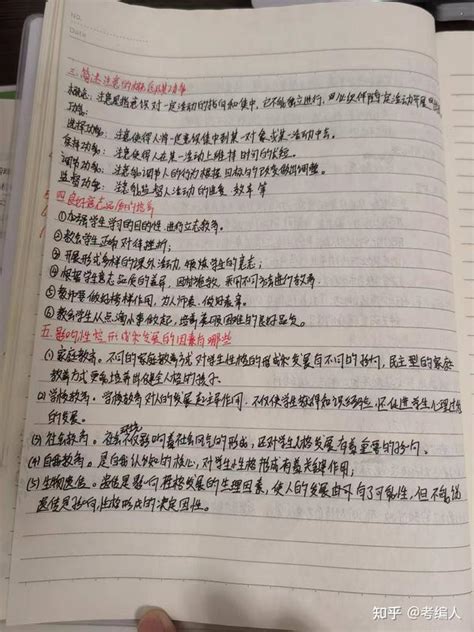 NO.
Date
三、简述注意的概念及其功能
概念：注意是指意识对一定活动的指向和集中，它不能独立进行，
功能：
选择功能：注意使得人将一定意识集中到某一对象或某一活动中去。
保持功能：注意使得人在某一活动上维持时间的长短。
调节功能：注意能调节人的行为根据目标的改变做出调整。
监督功能：注意能监督人活动的进度、效率等
四、良好意志品质的培养
①加强学生学习的目的性，进行立志教育。
②教会学生正确对待挫折；
③开展形式多样的课外活动，锻炼学生的意志；
④根据学生意志品质的差异，采用不同方法进行教育
⑤教师要做好榜样作用，力人师表，做好表率。
⑥教会学生从点滴小事做起，培养克服困难的良好品质。
五、影响性格形成和发展的因素有哪些
(1)家庭教育。不同的家庭教育方式对学生性格的形成和发展有不同的影响，民主型的家庭
教育方式更易培养出健全人格的孩子。
(2)学校教育。学校教育对人的发展起主导作用，不仅使学生获得知识经验，还促进学生心理过程
的发展。
(3)社会教育。社会环境影响着社会风气的形成，还对学生人格发展有着重要的影响。
(4)自我教育。是自我认知的核心，对学生性格形成有着关键作用；
(5)生物遗传。遗传是影响性格发展的生理因素，使人的发展由可有了可能性，但不能说
遗传是影响性格形成的决定因性。
知乎 @考编人